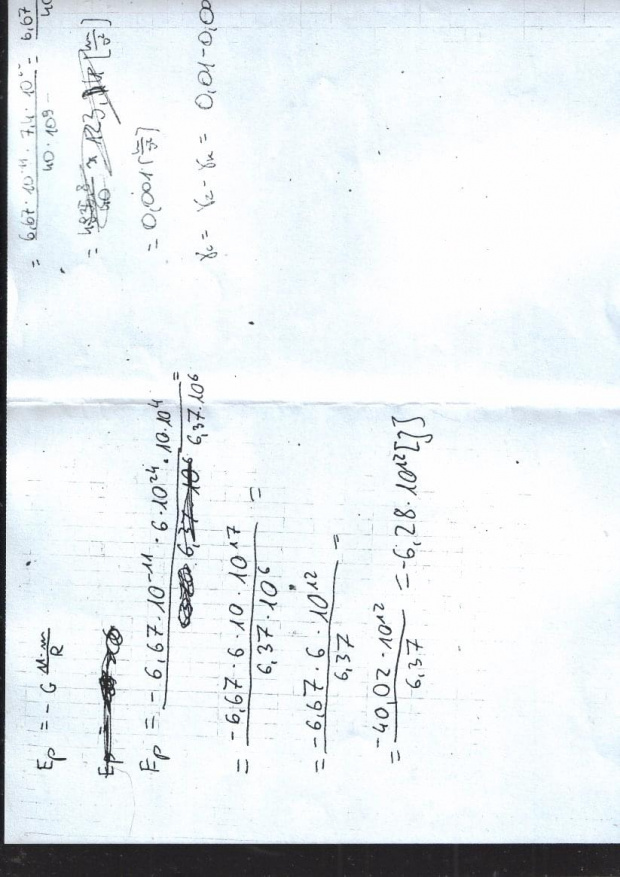 Ep = -G M·m / R
Ep = -6,67·10^-11 · 6·10^24 · 10·10^4 / 6,37·10^6 =
= -6,67·6·10·10^17 / 6,37·10^6 =
= -6,67·6·10^12 / 6,37 =
= -40,02·10^12 / 6,37 = -6,28·10^12 [J]
= 6,67·10^-11 · 7,4·10 / 40·10 = 6,67 / 40
= 0,001
γc = γz - γk = 0,01-0,00